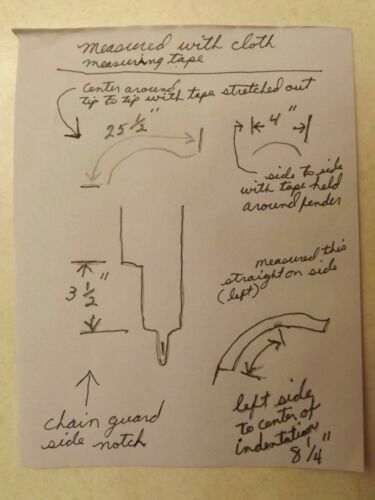 measured with cloth
measuring tape
center around
tip to tip with tape stretched out
25 1/2"
4"
side to side
with tape held
around fender
measured this
straight on side
(left)
3 1/2"
chain guard
side notch
left side
to center of
indentation
8 1/4"